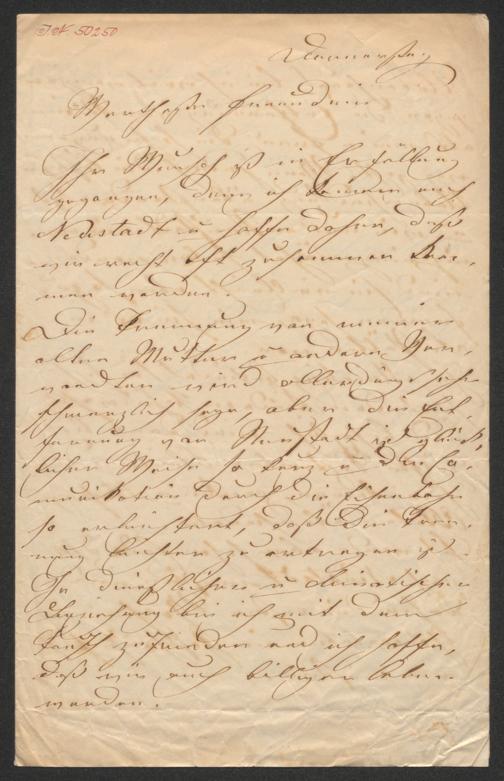 I.N. 50250
Donnerstag
Wertheste Freundin
Ihr Wunsch ist in Erfüllung
gegangen, denn ich komme nach
Neustadt u hoffe daher, daß
wir recht oft zusammen kom-
men werden.
Die Trennung von meiner
alten Mutter u anderen Ver-
wandten wird allerdings sehr
schmerzlich seyn, aber die Ent-
fernung von Neustadt ist glück-
licher Weise so kurz u die Co-
munikation durch die Eisenbahn
so erleichtert, daß die Tren-
nung leichter zu ertragen ist.
In dienstlicher u climatischer
Beziehung bin ich mit dem
Tausch zufrieden und ich hoffe,
daß wir auch billiger leben
werden.